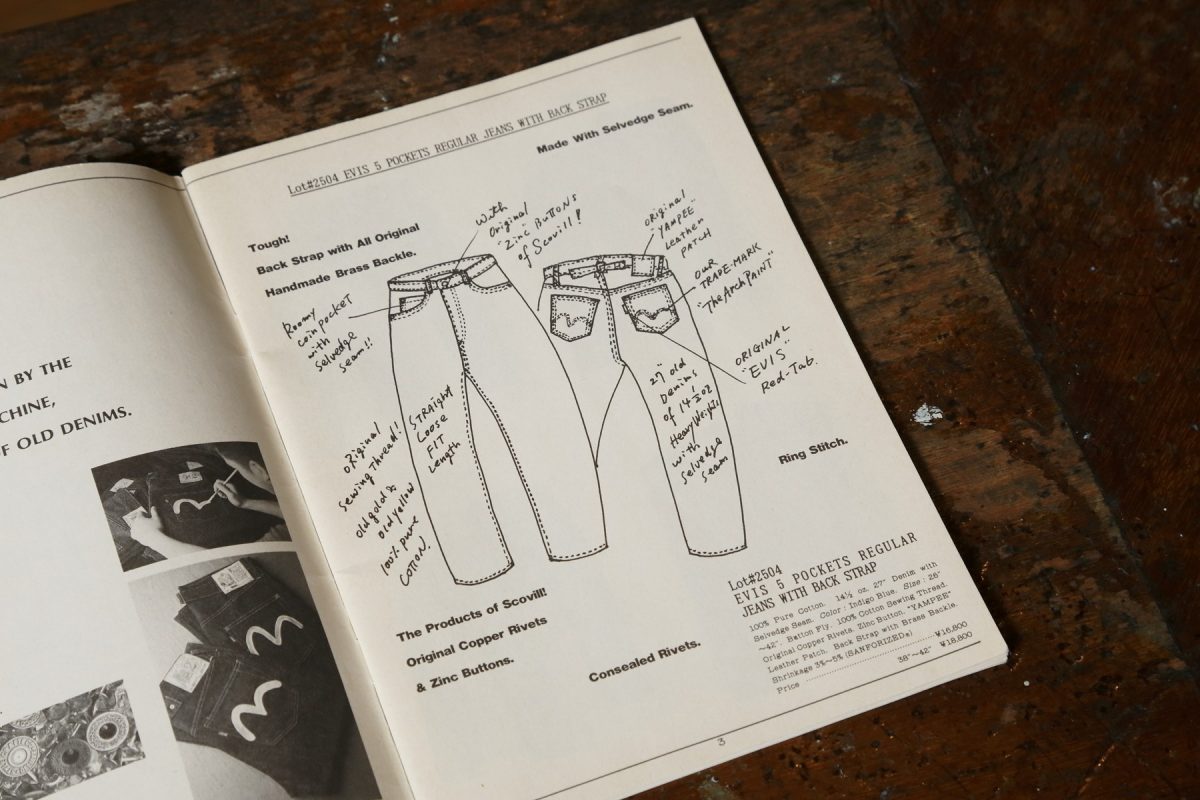 N BY THE
CHINE,
F OLD DENIMS.
Lot#2504 EVIS 5 POCKETS REGULAR JEANS WITH BACK STRAP
Made With Selvedge Seam.
Tough!
Back Strap with All Original
Handmade Brass Backle.
With
Original
"Zinc" BUTTONS
of Scovill!
original
"YAMPEE"
Leather
PATCH
our
TRADE-MARK
"The Arch PAINT"
Roomy
coin pocket
with
selvedge
seam!!
ORIGINAL
"EVIS"
Red-Tab.
STRAIGHT
LOOSE
FIT
Length
27" old
Denims
of 14 1/2 oz
HeavyWeights
with
selvedge
seam
original
sewing thread!
old gold &
old yellow
100% pure
COTTON.
Ring Stitch.
The Products of Scovill!
Original Copper Rivets
& Zinc Buttons.
Consealed Rivets.
Lot#2504
EVIS 5 POCKETS REGULAR
JEANS WITH BACK STRAP
100% Pure Cotton. 14½ oz. 27" Denim with
Selvedge Seam. Color: Indigo Blue. Size: 26"
~42". Button Fly. 100% Cotton Sewing Thread.
Original Copper Rivets. Zinc Button. "YAMPEE"
Leather Patch. Back Strap with Brass Backle.
Shrinkage 3%~5% (SANFORIZED®)
Price ¥16,800
38"~42" ¥18,800
3